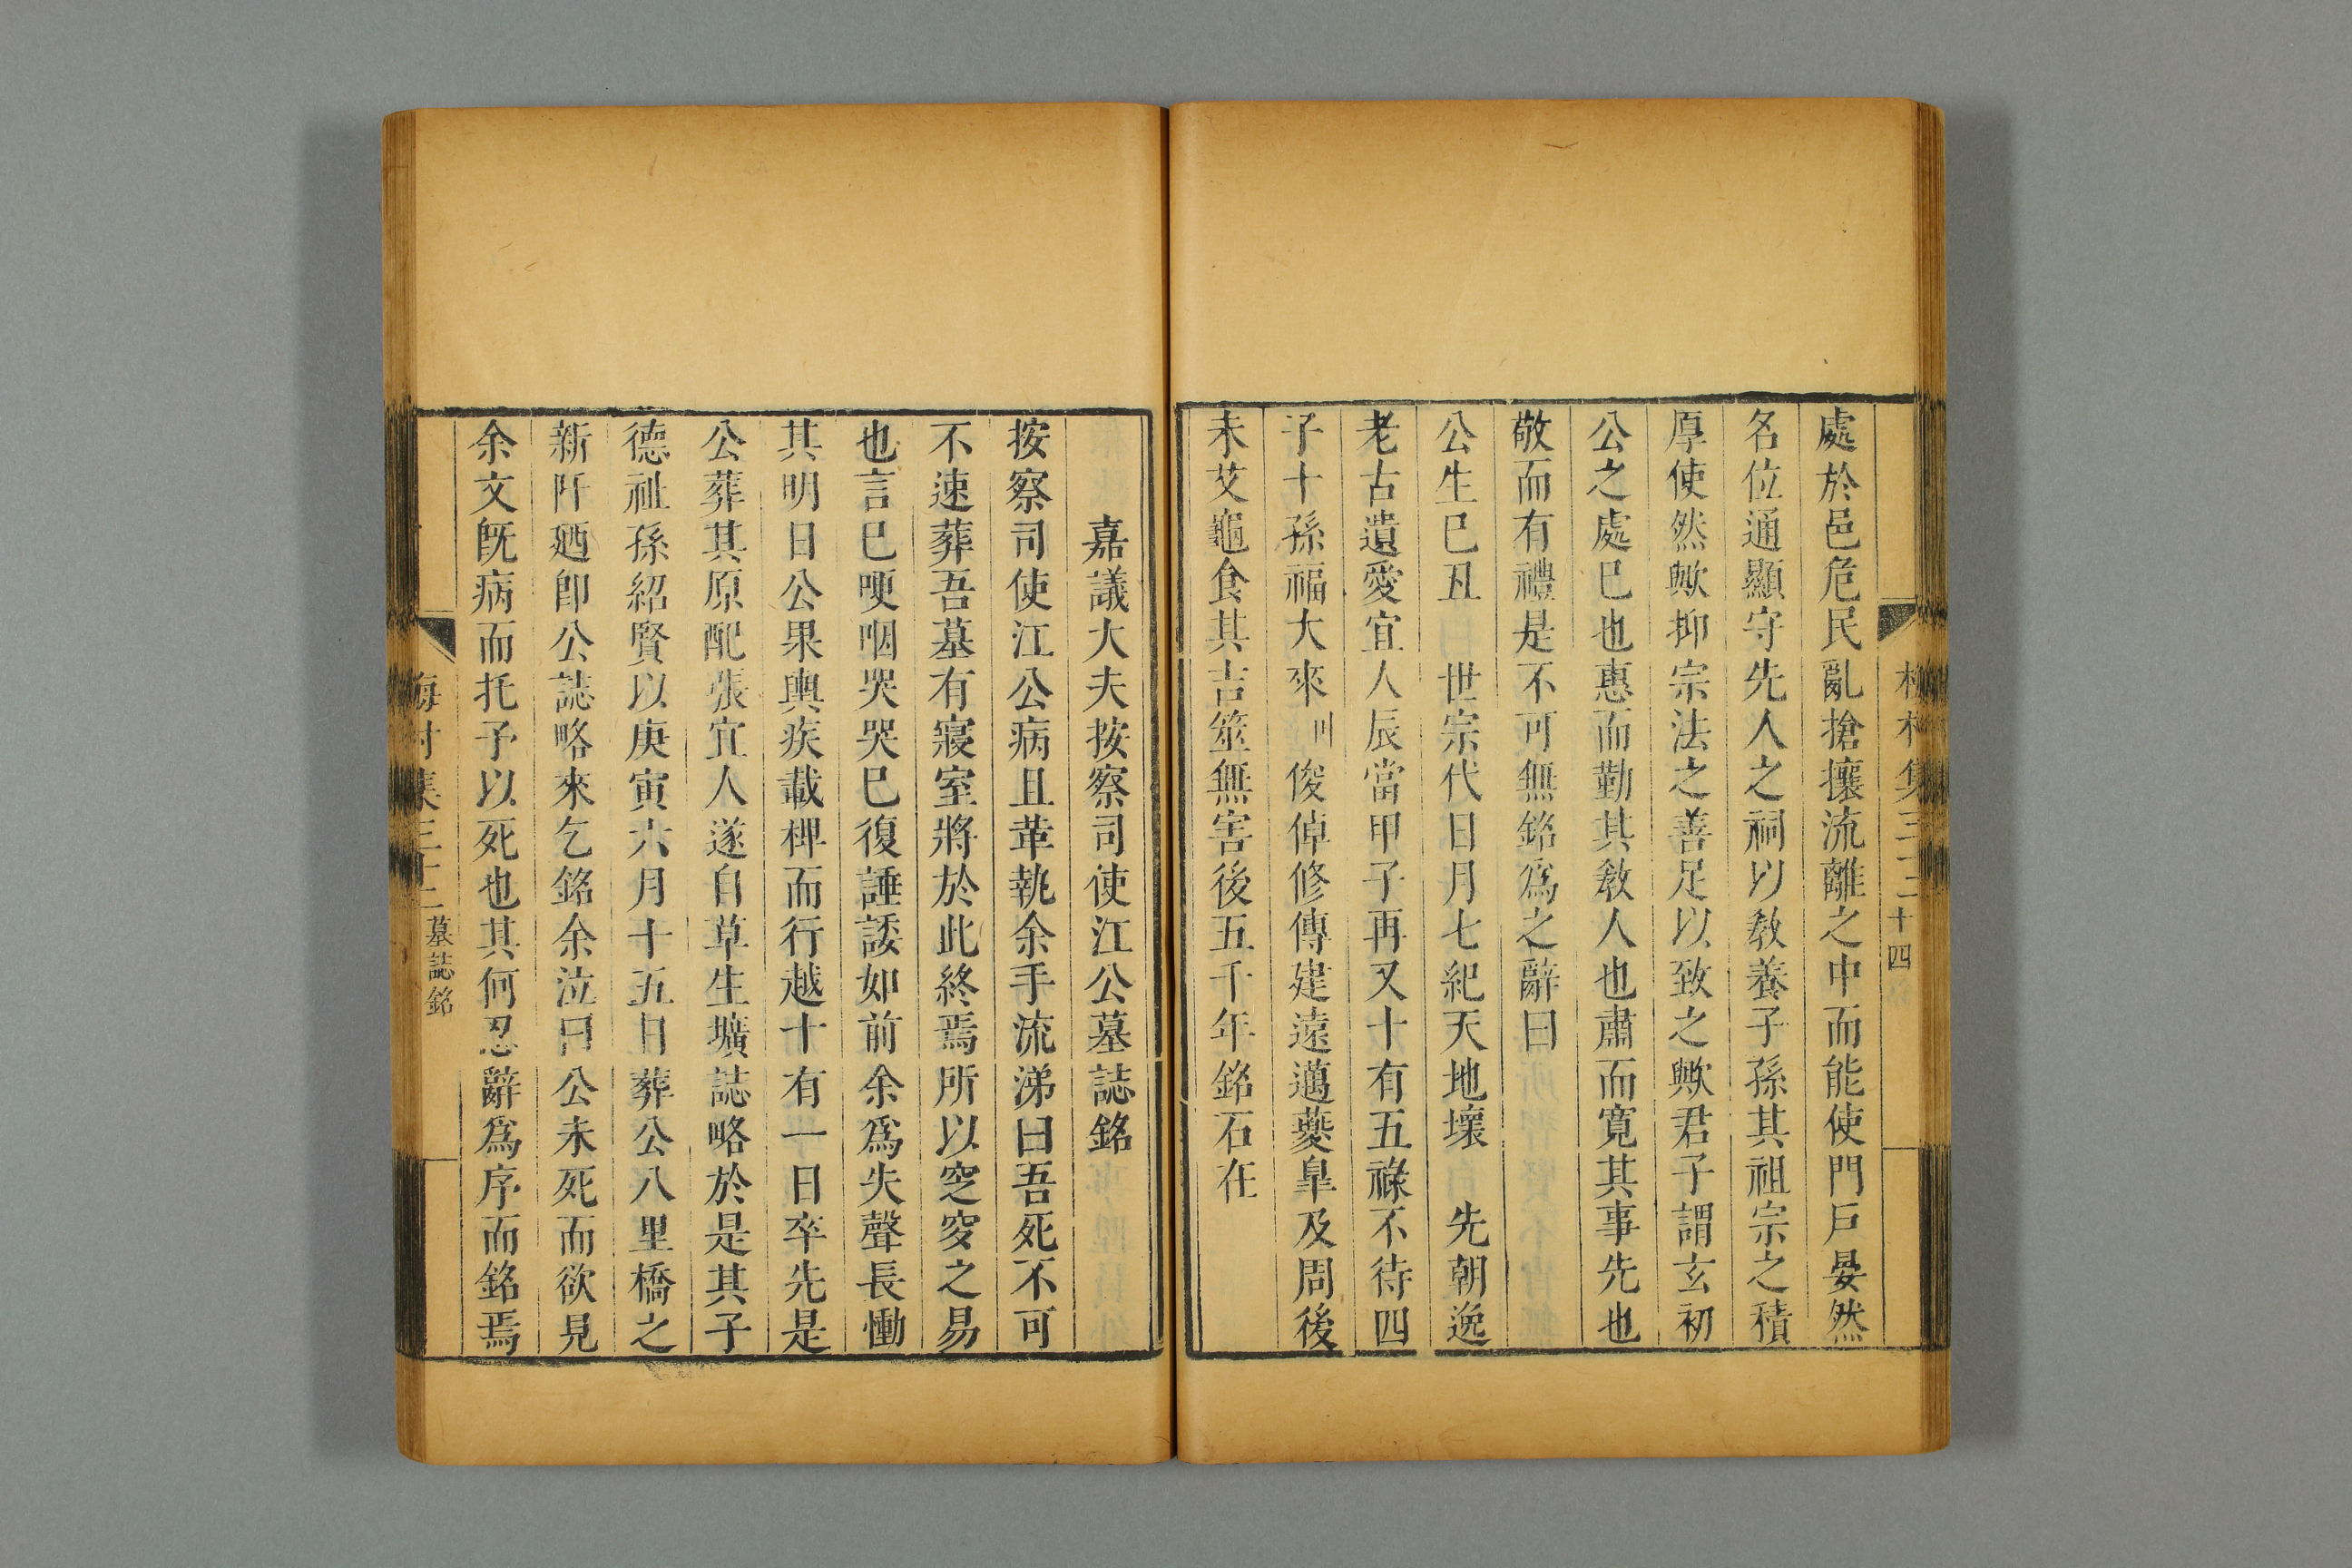 處於邑危民亂搶攘流離之中而能使門戶晏然
名位通顯守先人之祠以敎養子孫其祖宗之積
厚使然歟抑宗法之善足以致之歟君子謂玄初
公之處已也惠而勤其敎人也肅而寬其事先也
敬而有禮是不可無銘爲之辭曰
公生巳丑 世宗代日月七紀天地壞 先朝逸
老古遺愛宜人辰當甲子再又十有五祿不待四
子十孫福大來 俊倬修傳建遠邁夔臯及周後
未艾龜食其吉筮無害後五千年銘石在
十四
嘉議大夫按察司使江公墓誌銘
按察司使江公病且革執余手流涕曰吾死不可
不速葬吾墓有寢室將於此終焉所以窆穸之易
也言巳哽咽哭哭巳復諈諉如前余爲失聲長慟
其明日公果輿疾載椑而行越十有一日卒先是
公葬其原配張宜人遂自草生壙誌略於是其子
德祉孫紹賢以庚寅六月十五日葬公八里橋之
新阡廼卽公誌略來乞銘余泣曰公未死而欲見
余文旣病而托予以死也其何忍辭爲序而銘焉
墓誌銘